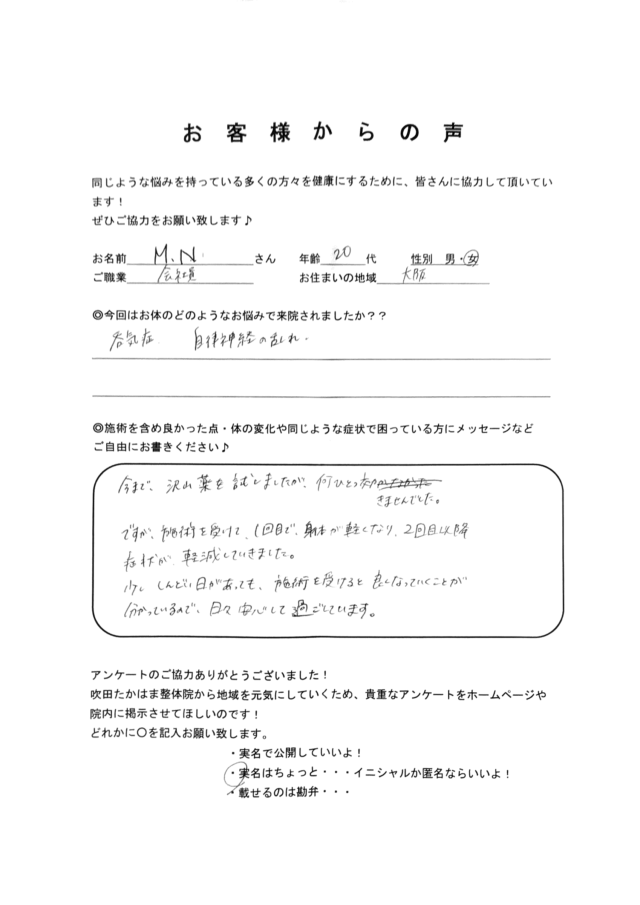 お客様からの声
同じような悩みを持っている多くの方々を健康にするために、皆さんに協力して頂いてい
ます！
ぜひご協力をお願い致します♪
お名前 M.N. さん 年齢 20 代 性別 男・女
ご職業 会社員 お住まいの地域 大阪
◎今回はお体のどのようなお悩みで来院されましたか？？
呑気症 自律神経の乱れ.
◎施術を含め良かった点・体の変化や同じような症状で困っている方にメッセージなど
ご自由にお書きください♪
今まで、沢山薬を試しましたが、何ひとつ効
きませんでした。
ですが、施術を受けて、1回目で、身体が軽くなり、2回目以降
症状が軽減していきました。
少し しんどい日があっても、施術を受けると良くなっていくことが
分かっているので、日々安心して過ごしています。
アンケートのご協力ありがとうございました！
吹田たかはま整体院から地域を元気にしていくため、貴重なアンケートをホームページや
院内に掲示させてほしいのです！
どれかに〇を記入お願い致します。
・実名で公開していいよ！
・実名はちょっと・・・イニシャルか匿名ならいいよ！
・載せるのは勘弁・・・